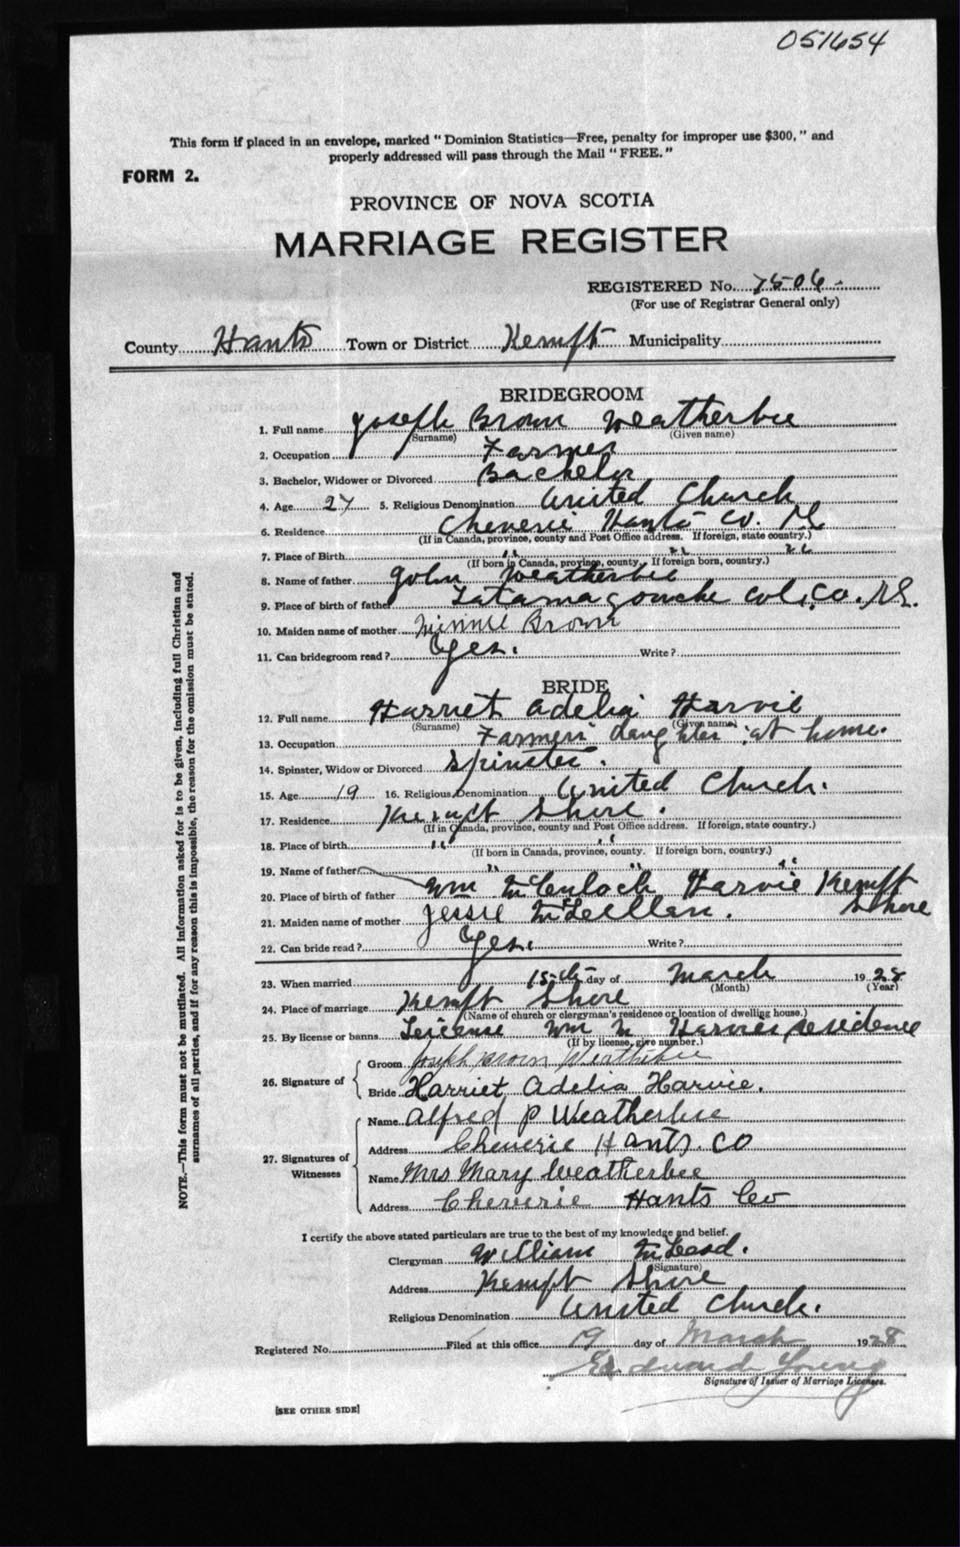 051654
This form if placed in an envelope, marked "Dominion Statistics—Free, penalty for improper use $300," and
properly addressed will pass through the Mail "FREE."
FORM 2.
PROVINCE OF NOVA SCOTIA
MARRIAGE REGISTER
REGISTERED No. 7506-
(For use of Registrar General only)
County Hants Town or District Kempt Municipality
BRIDEGROOM
1. Full name Joseph Brown Weatherbee
(Surname) (Given name)
2. Occupation Farmer
3. Bachelor, Widower or Divorced Bachelor
4. Age 27 5. Religious Denomination United Church
6. Residence Cheverie Hants Co. NS
(If in Canada, province, county and Post Office address. If foreign, state country.)
7. Place of Birth " " "
(If born in Canada, province, county. If foreign born, country.)
8. Name of father John Weatherbee
9. Place of birth of father Tatamagouche Col. Co. N.S.
10. Maiden name of mother Minnie Brown
11. Can bridegroom read? Yes. Write?
BRIDE
12. Full name Harriet Adelia Harvie
(Surname) (Given name)
13. Occupation Farmers daughter at home.
14. Spinster, Widow or Divorced Spinster.
15. Age 19 16. Religious Denomination United Church.
17. Residence Kempt Shore.
(If in Canada, province, county and Post Office address. If foreign, state country.)
18. Place of birth " "
(If born in Canada, province, county. If foreign born, country.)
19. Name of father " " "
20. Place of birth of father Wm McCuloch Harvie Kempt Shore
21. Maiden name of mother Jessie McLellan.
22. Can bride read? Yes. Write?
23. When married 15th day of March 1928
(Month) (Year)
24. Place of marriage Kempt Shore
(Name of church or clergyman's residence or location of dwelling house.)
25. By license or banns License Wm M Harvies residence
(If by license, give number.)
26. Signature of
Groom Joseph Brown Weatherbee
Bride Harriet Adelia Harvie.
27. Signatures of Witnesses
Name Alfred P Weatherbee
Address Cheverie Hants. CO
Name Mrs Mary Weatherbee
Address Cheverie Hants Co
I certify the above stated particulars are true to the best of my knowledge and belief.
Clergyman William McLeod.
(Signature)
Address Kempt Shore
Religious Denomination United Church.
Registered No. Filed at this office 19 day of March 1928
Edward Young
Signature of Issuer of Marriage Licenses.
[SEE OTHER SIDE]
NOTE.—This form must not be mutilated. All information asked for is to be given, including full Christian and
surnames of all parties, and if for any reason this is impossible, the reason for the omission must be stated.